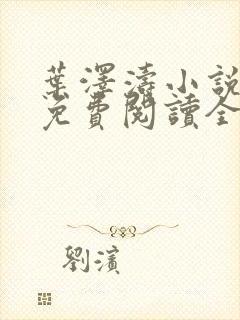 葉澤濤小說
免費閱讀全
劉濱